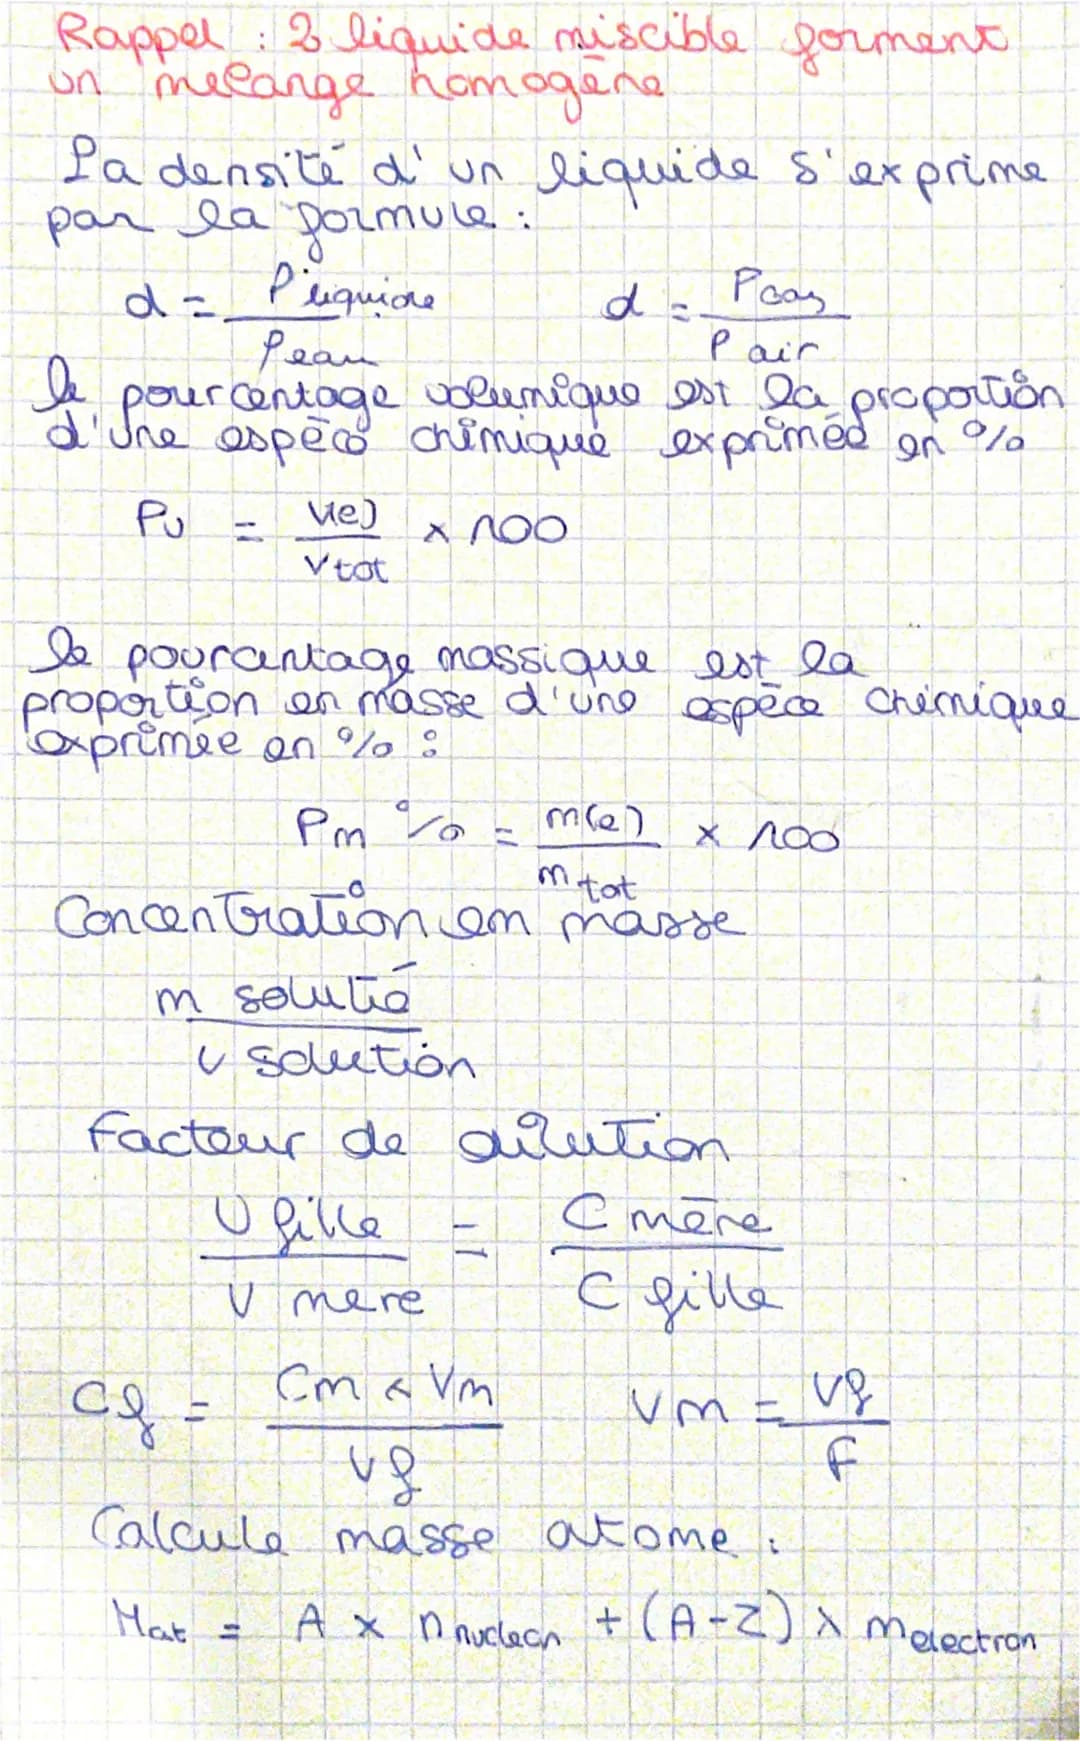 Rappel : 2 liquide miscible forment
un melange homogène
La densité d'un liquide s'exprime
par la formule :
d = ρ liquide / ρ eau    d = ρ gaz / ρ air
le pourcentage volumique est la proportion
d'une espèce chimique exprimée en %
Pv = V(e) / V tot × 100
le pourcentage massique est la
proportion en masse d'une espèce chimique
exprimée en % :
Pm % = m(e) / m tot × 100
Concentration en masse
m soluté / v solution
Facteur de dilution
V fille / V mere = C mère / C fille
Cf = Cm × Vm / Vf    Vm = Vf / F
Calcule masse atome :
Mat = A × n nucleon + (A-Z) × m electron